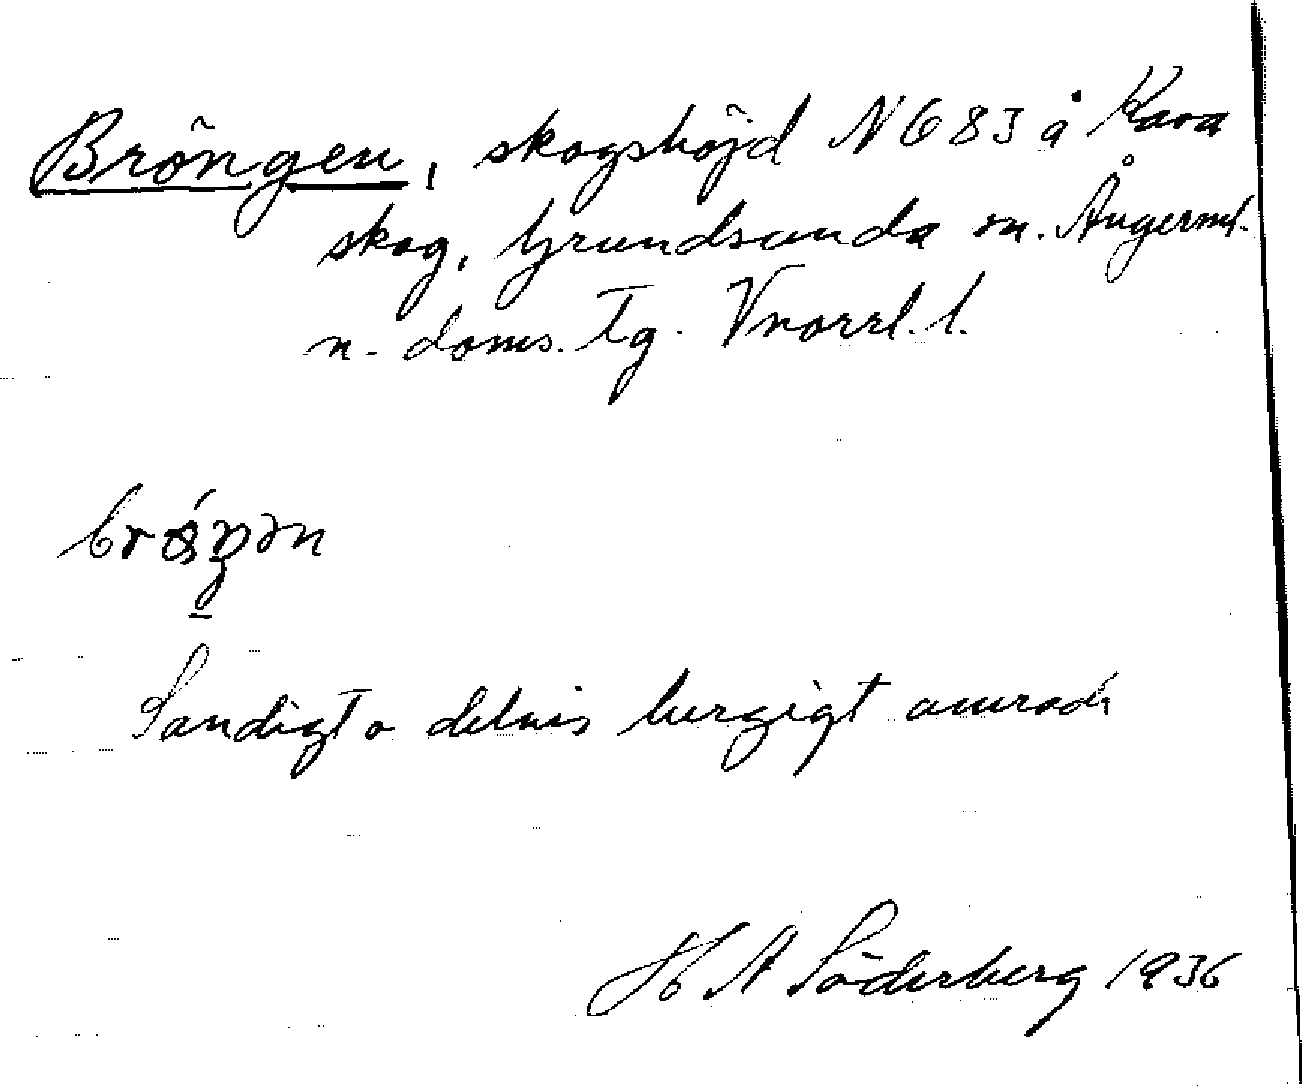 Bröngen, skogshöjd N 683 å Kasa
skog, Grundsunda sn. Ångerml.
n. doms. tg. Vnorrl. l.
Sandigt o delvis bergigt område
H A Söderberg 1936